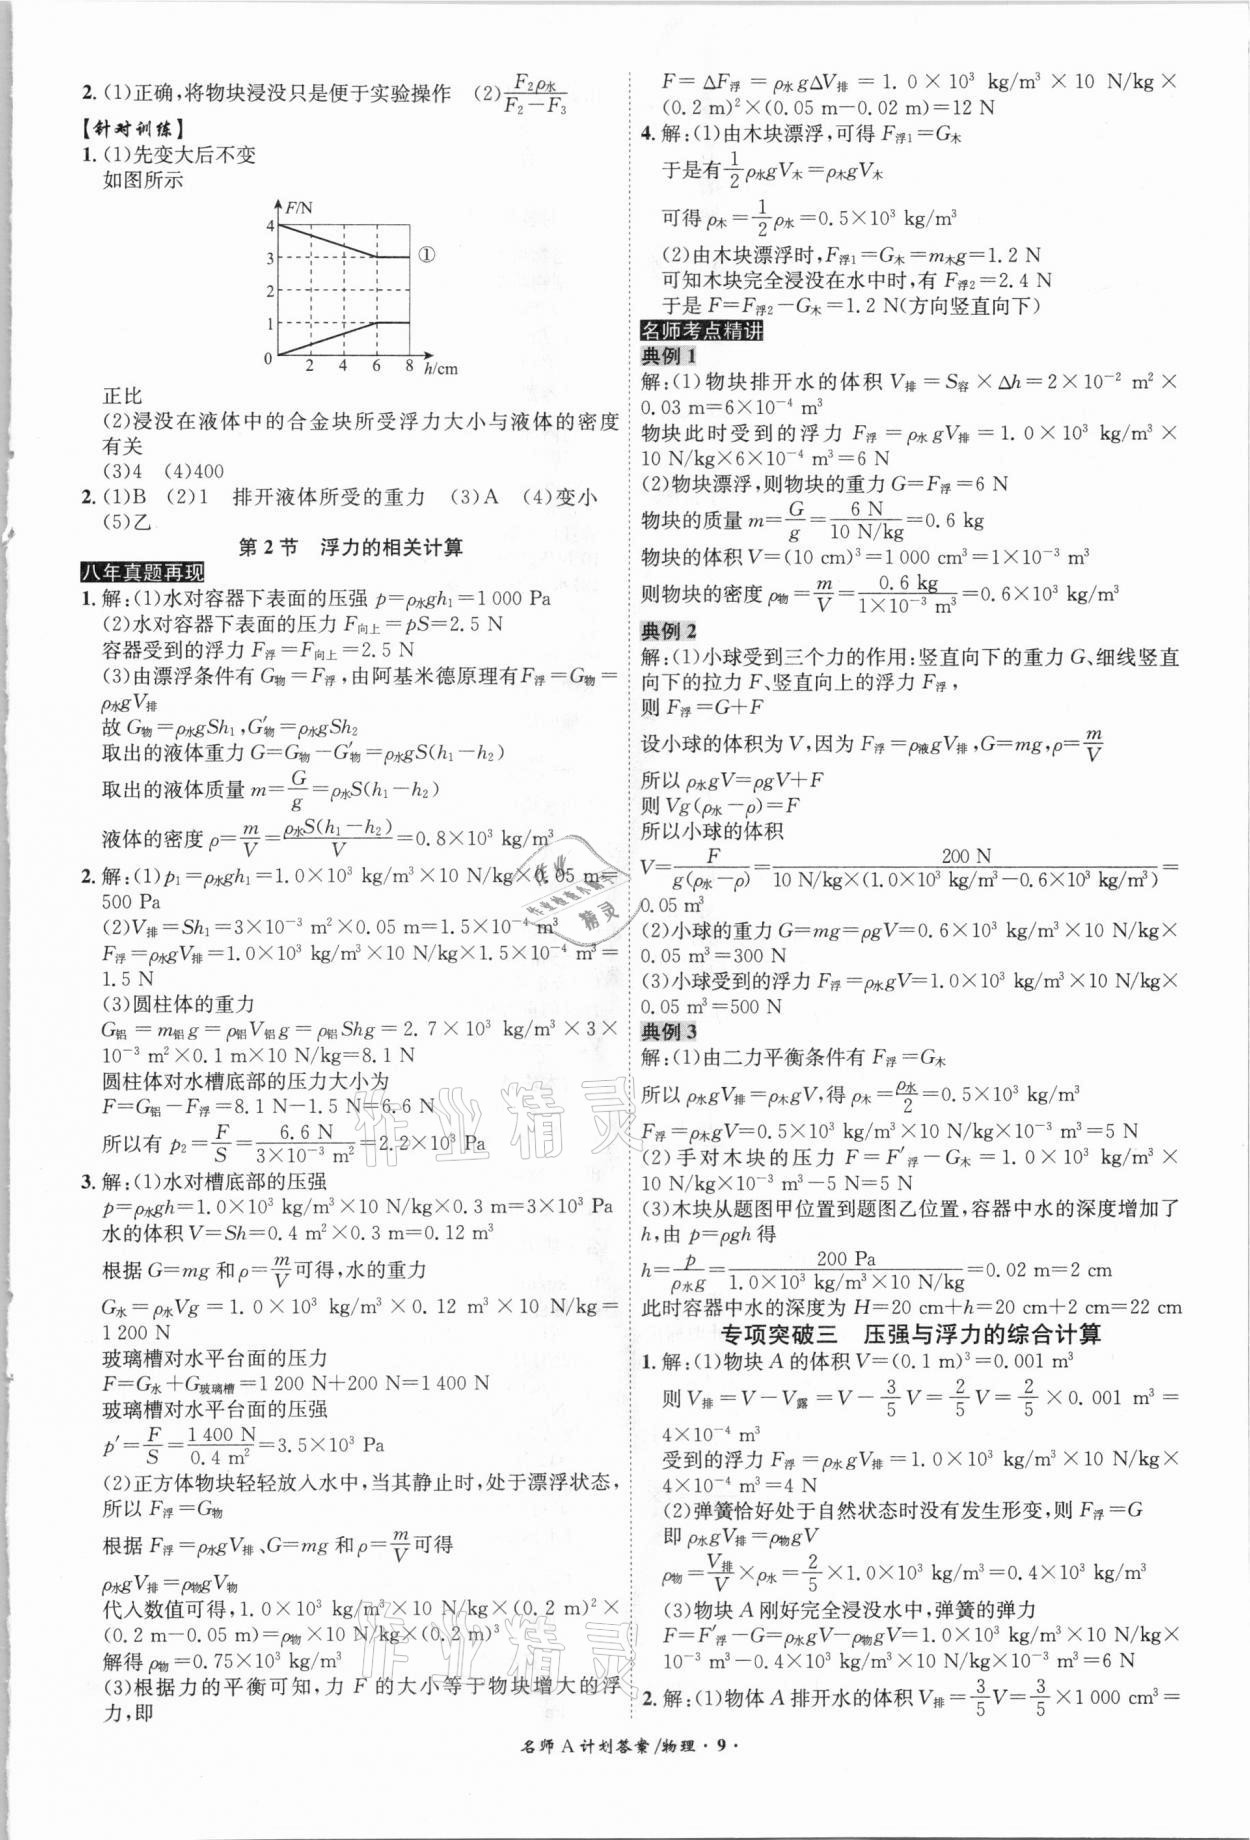 2. (1)正确,将物块浸没只是便于实验操作 (2)F₂ρ水/(F₂－F₃)
【针对训练】
1. (1)先变大后不变
如图所示
F/N
4
3
2
1
0
2 4 6 8 h/cm
①
正比
(2)浸没在液体中的合金块所受浮力大小与液体的密度
有关
(3)4 (4)400
2. (1)B (2)1 排开液体所受的重力 (3)A (4)变小
(5)乙
第 2 节 浮力的相关计算
八年真题再现
1. 解:(1)水对容器下表面的压强 p＝ρ水gh₁＝1 000 Pa
(2)水对容器下表面的压力 F向上＝pS＝2.5 N
容器受到的浮力 F浮＝F向上＝2.5 N
(3)由漂浮条件有 G物＝F浮,由阿基米德原理有F浮＝G物＝
ρ水gV排
故 G物＝ρ水gSh₁,G′物＝ρ水gSh₂
取出的液体重力 G＝G物－G′物＝ρ水gS(h₁－h₂)
取出的液体质量 m＝G/g＝ρ水S(h₁－h₂)
液体的密度 ρ＝m/V＝ρ水S(h₁－h₂)/V＝0.8×10³ kg/m³
2. 解:(1)p₁＝ρ水gh₁＝1.0×10³ kg/m³×10 N/kg×0.05 m＝
500 Pa
(2)V排＝Sh₁＝3×10⁻³ m²×0.05 m＝1.5×10⁻⁴ m³
F浮＝ρ水gV排＝1.0×10³ kg/m³×10 N/kg×1.5×10⁻⁴ m³＝
1.5 N
(3)圆柱体的重力
G铝＝m铝g＝ρ铝V铝g＝ρ铝Shg＝2.7×10³ kg/m³×3×
10⁻³ m²×0.1 m×10 N/kg＝8.1 N
圆柱体对水槽底部的压力大小为
F＝G铝－F浮＝8.1 N－1.5 N＝6.6 N
所以有 p₂＝F/S＝6.6 N/(3×10⁻³ m²)＝2.2×10³ Pa
3. 解:(1)水对槽底部的压强
p＝ρ水gh＝1.0×10³ kg/m³×10 N/kg×0.3 m＝3×10³ Pa
水的体积 V＝Sh＝0.4 m²×0.3 m＝0.12 m³
根据 G＝mg 和 ρ＝m/V可得,水的重力
G水＝ρ水Vg＝1.0×10³ kg/m³×0.12 m³×10 N/kg＝
1 200 N
玻璃槽对水平台面的压力
F＝G水＋G玻璃槽＝1 200 N＋200 N＝1 400 N
玻璃槽对水平台面的压强
p′＝F/S＝1 400 N/0.4 m²＝3.5×10³ Pa
(2)正方体物块轻轻放入水中,当其静止时,处于漂浮状态,
所以 F浮＝G物
根据 F浮＝ρ水gV排、G＝mg 和 ρ＝m/V可得
ρ水gV排＝ρ物gV物
代入数值可得,1.0×10³ kg/m³×10 N/kg×(0.2 m)²×
(0.2 m－0.05 m)＝ρ物×10 N/kg×(0.2 m)³
解得 ρ物＝0.75×10³ kg/m³
(3)根据力的平衡可知,力 F 的大小等于物块增大的浮
力,即
F＝ΔF浮＝ρ水gΔV排＝1.0×10³ kg/m³×10 N/kg×
(0.2 m)²×(0.05 m－0.02 m)＝12 N
4. 解:(1)由木块漂浮,可得 F浮1＝G木
于是有1/2ρ水gV木＝ρ木gV木
可得 ρ木＝1/2ρ水＝0.5×10³ kg/m³
(2)由木块漂浮时,F浮1＝G木＝m木g＝1.2 N
可知木块完全浸没在水中时,有 F浮2＝2.4 N
于是 F＝F浮2－G木＝1.2 N(方向竖直向下)
名师考点精讲
典例 1
解:(1)物块排开水的体积 V排＝S容×Δh＝2×10⁻² m²×
0.03 m＝6×10⁻⁴ m³
物块此时受到的浮力 F浮＝ρ水gV排＝1.0×10³ kg/m³×
10 N/kg×6×10⁻⁴ m³＝6 N
(2)物块漂浮,则物块的重力 G＝F浮＝6 N
物块的质量 m＝G/g＝6 N/(10 N/kg)＝0.6 kg
物块的体积 V＝(10 cm)³＝1 000 cm³＝1×10⁻³ m³
则物块的密度 ρ物＝m/V＝0.6 kg/(1×10⁻³ m³)＝0.6×10³ kg/m³
典例 2
解:(1)小球受到三个力的作用:竖直向下的重力 G、细线竖直
向下的拉力 F、竖直向上的浮力 F浮,
则 F浮＝G＋F
设小球的体积为 V,因为 F浮＝ρ液gV排,G＝mg,ρ＝m/V
所以 ρ水gV＝ρgV＋F
则 Vg(ρ水－ρ)＝F
所以小球的体积
V＝F/[g(ρ水－ρ)]＝200 N/[10 N/kg×(1.0×10³ kg/m³－0.6×10³ kg/m³)]＝
0.05 m³
(2)小球的重力 G＝mg＝ρgV＝0.6×10³ kg/m³×10 N/kg×
0.05 m³＝300 N
(3)小球受到的浮力 F浮＝ρ水gV＝1.0×10³ kg/m³×10 N/kg×
0.05 m³＝500 N
典例 3
解:(1)由二力平衡条件有 F浮＝G木
所以 ρ水gV排＝ρ木gV,得 ρ木＝ρ水/2＝0.5×10³ kg/m³
F浮＝ρ木gV＝0.5×10³ kg/m³×10 N/kg×10⁻³ m³＝5 N
(2)手对木块的压力 F＝F′浮－G木＝1.0×10³ kg/m³×
10 N/kg×10⁻³ m³－5 N＝5 N
(3)木块从题图甲位置到题图乙位置,容器中水的深度增加了
h,由 p＝ρgh 得
h＝p/(ρ水g)＝200 Pa/(1.0×10³ kg/m³×10 N/kg)＝0.02 m＝2 cm
此时容器中水的深度为 H＝20 cm＋h＝20 cm＋2 cm＝22 cm
专项突破三 压强与浮力的综合计算
1. 解:(1)物块 A 的体积 V＝(0.1 m)³＝0.001 m³
则 V排＝V－V露＝V－3/5V＝2/5V＝2/5×0.001 m³＝
4×10⁻⁴ m³
受到的浮力 F浮＝ρ水gV排＝1.0×10³ kg/m³×10 N/kg×
4×10⁻⁴ m³＝4 N
(2)弹簧恰好处于自然状态时没有发生形变,则 F浮＝G
即 ρ水gV排＝ρ物gV
ρ物＝V排/V×ρ水＝2/5×1.0×10³ kg/m³＝0.4×10³ kg/m³
(3)物块 A 刚好完全浸没水中,弹簧的弹力
F＝F′浮－G＝ρ水gV－ρ物gV＝1.0×10³ kg/m³×10 N/kg×
10⁻³ m³－0.4×10³ kg/m³×10 N/kg×10⁻³ m³＝6 N
2. 解:(1)物体 A 排开水的体积 V排＝3/5V＝3/5×1 000 cm³＝
名师 A 计划答案/物理·9·
作业精灵
作业精灵